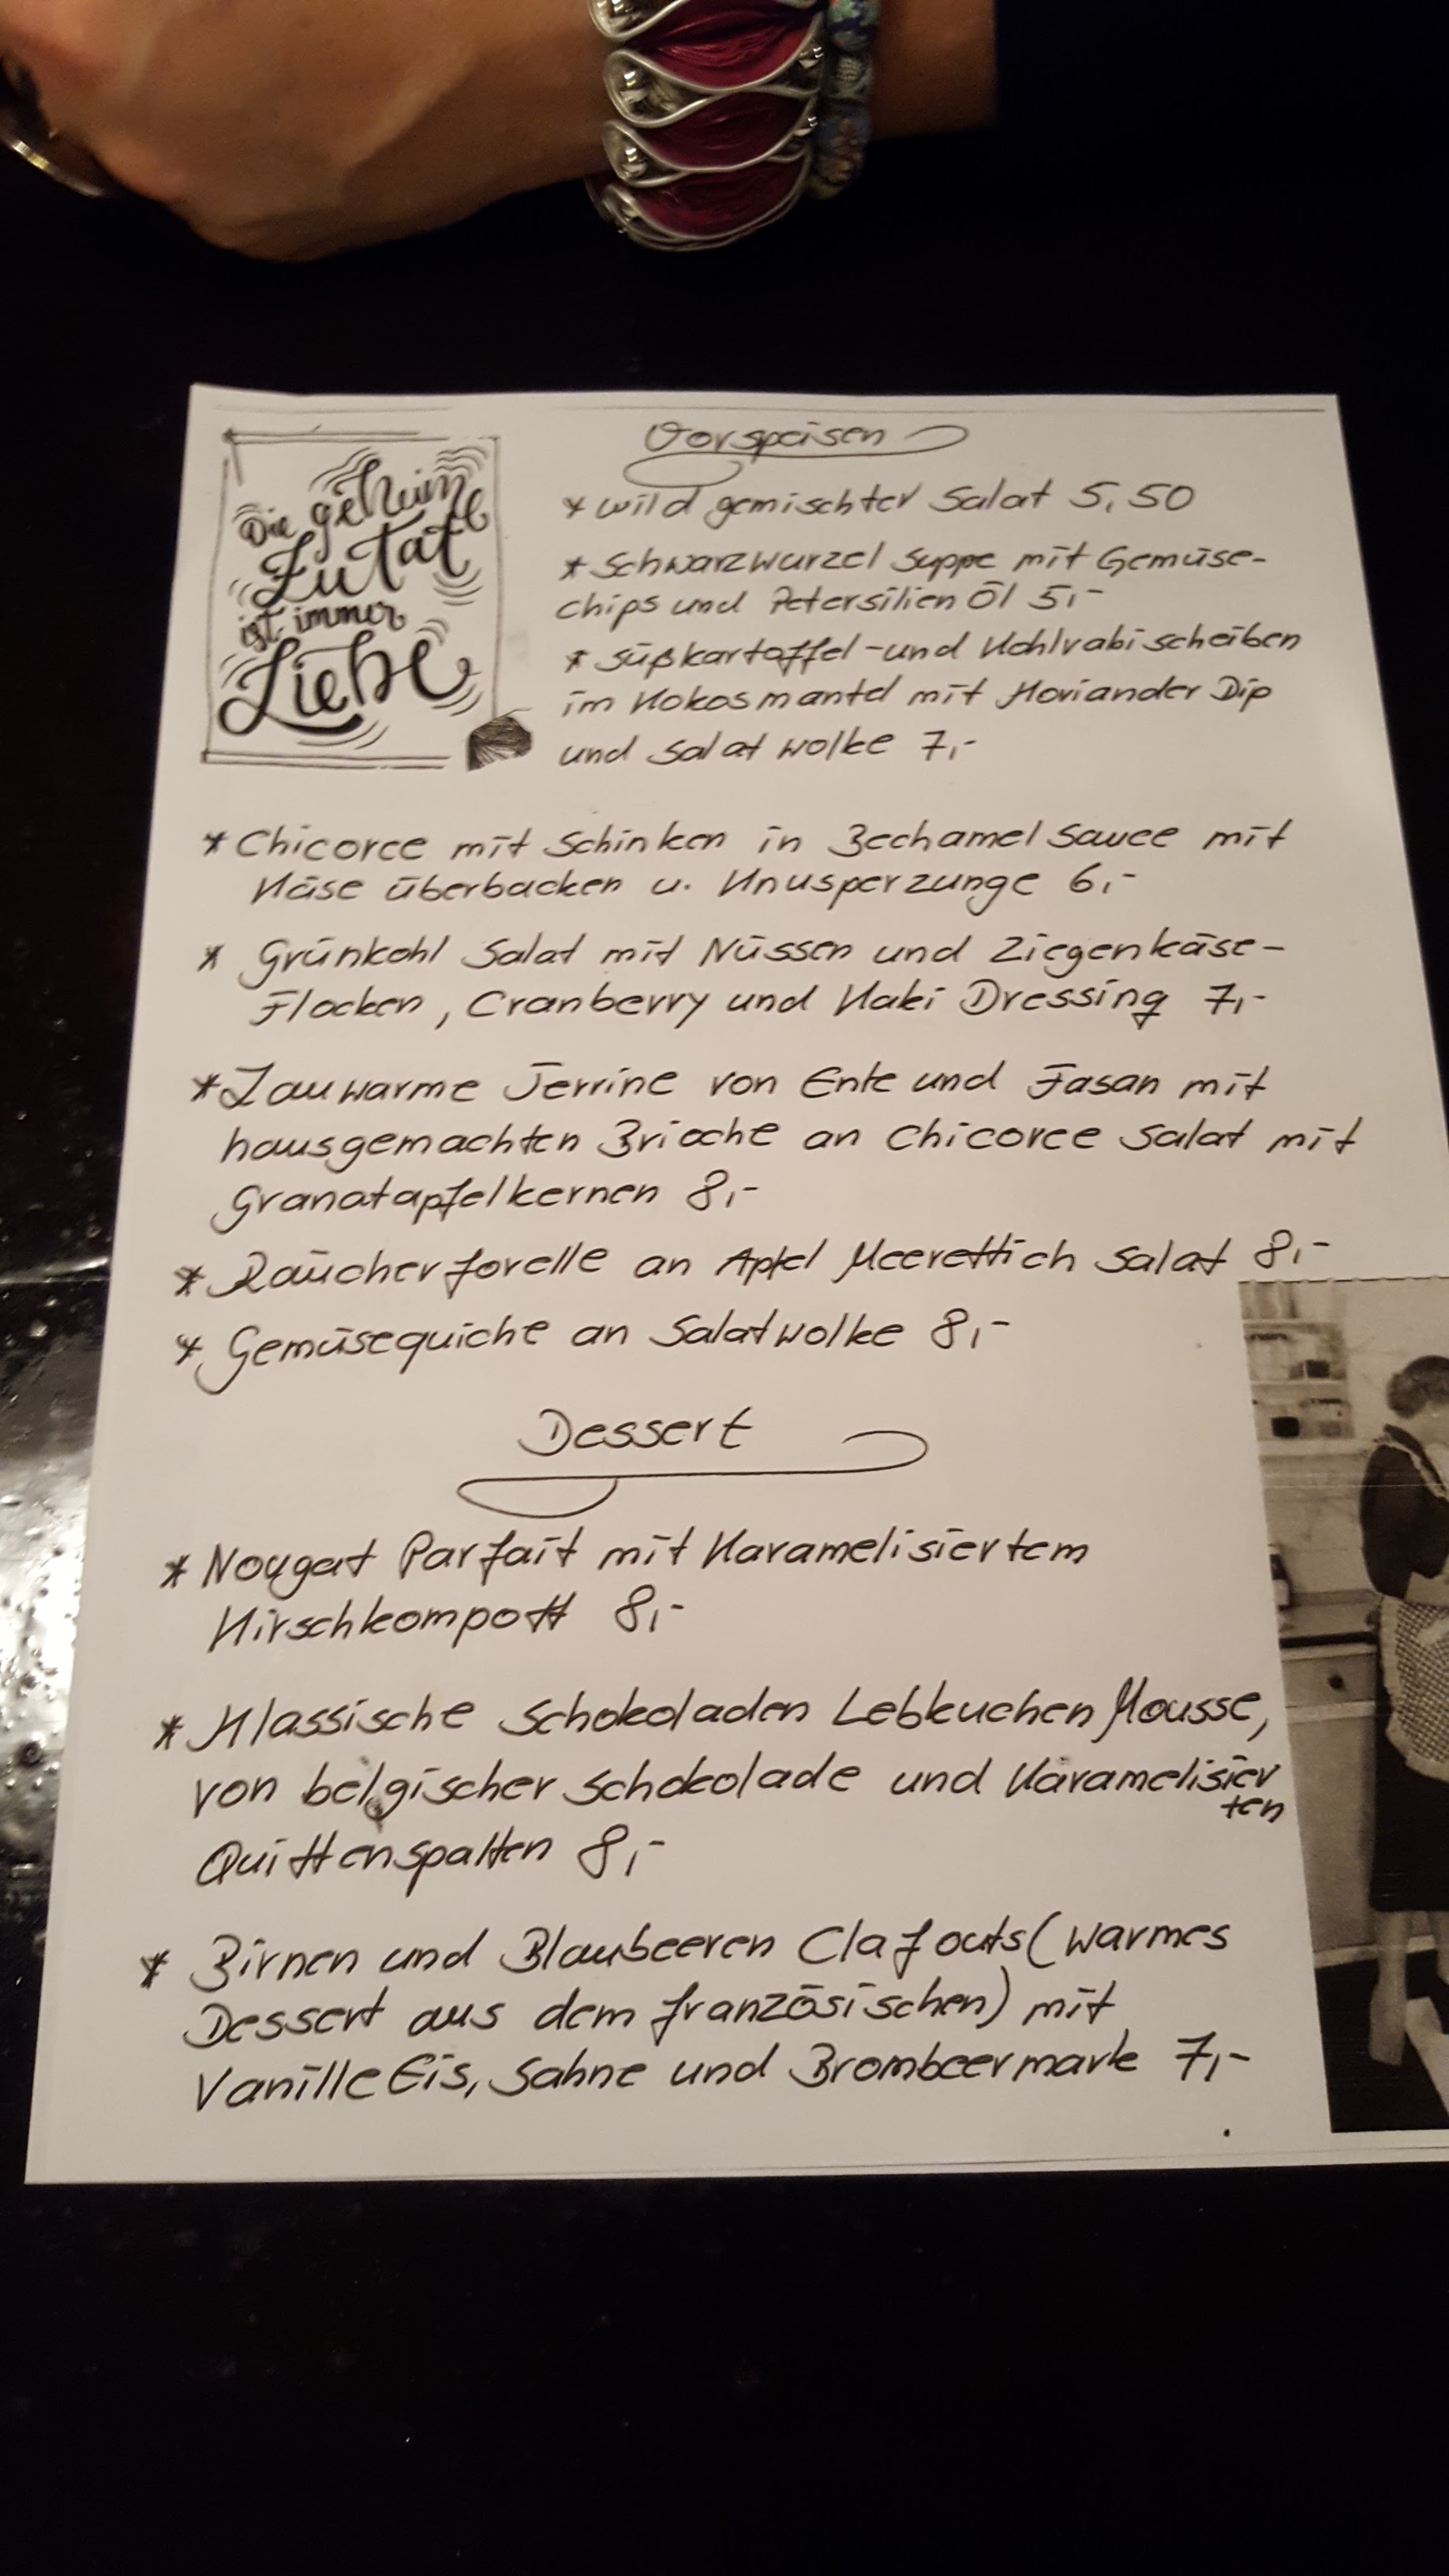 Die geheime
Zutat
ist immer
Liebe
Vorspeisen
* wild gemischter Salat 5,50
* Schwarzwurzel Suppe mit Gemüse-
chips und Petersilien Öl 5,-
* Süßkartoffel-und Kohlrabischeiben
im Kokosmantel mit Koriander Dip
und Salat wolke 7,-
* Chicoree mit Schinken in Bechamel Sauce mit
Käse überbacken u. Knusperzunge 6,-
* Grünkohl Salat mit Nüssen und Ziegenkäse-
Flocken, Cranberry und Kaki Dressing 7,-
* Lauwarme Terrine von Ente und Fasan mit
hausgemachten Brioche an Chicoree Salat mit
Granatapfelkernen 8,-
* Räucherforelle an Apfel Meerettich Salat 8,-
* Gemüsequiche an Salatwolke 8,-
Dessert
* Nougat Parfait mit Karamelisiertem
Kirschkompott 8,-
* Klassische Schokoladen Lebkuchen Mousse,
von belgischer Schokolade und Karamelisier
ten
Quittenspalten 8,-
* Birnen und Blaubeeren Clafouts (warmes
Dessert aus dem französischen) mit
Vanille Eis, Sahne und Brombeermark 7,-